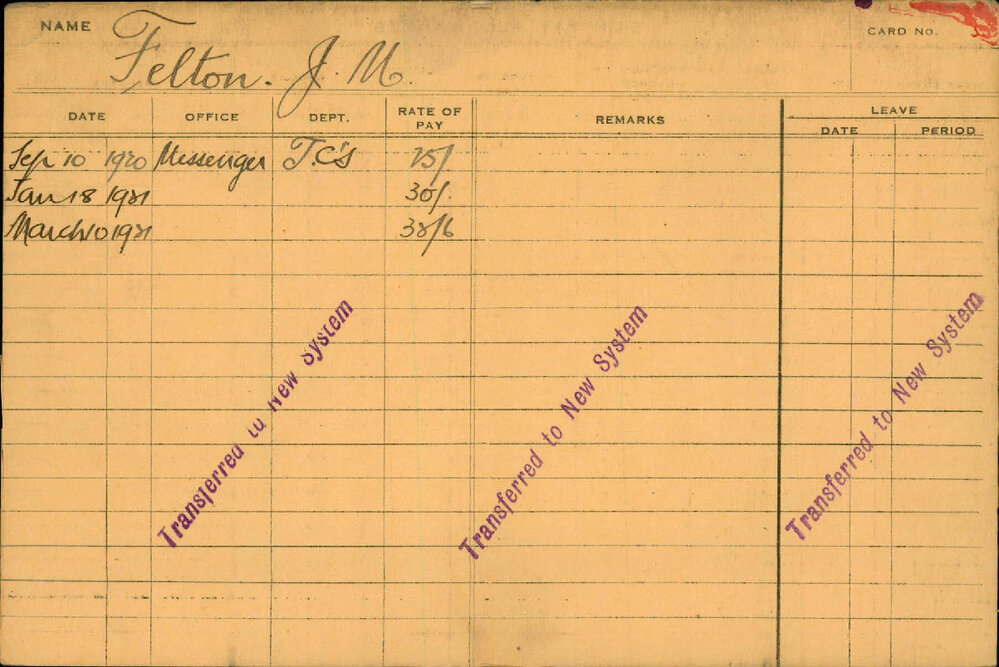 NAME Felton. J. M. CARD No.
DATE OFFICE DEPT. RATE OF PAY REMARKS LEAVE
DATE PERIOD
Sep 10 1920 Messenger T.C's 25/
Jan 18 1921 30/.
March 10 1921 38/6
Transferred to New System
Transferred to New System
Transferred to New System